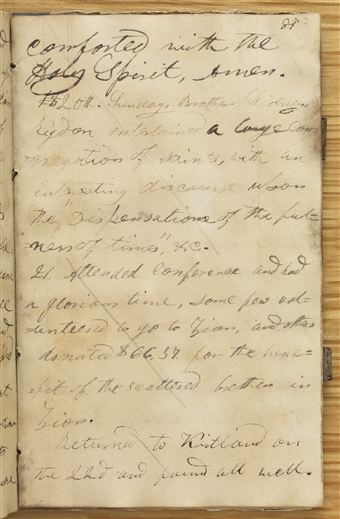 81
comforted with the
Holy Spirit, Amen.
20th. Sunday Brother Sidney
Rigdon entertained a large con-
gregation of saints, with an
interesting discourse upon
the "Dispensation of the ful-
ness of times", &c.
21. Attended Conference and had
a glorious time, some few vol-
unteered to go to Zion, and others
donated $66.37. for the bene-
fit of the scattered brethren in
Zion.
Returned to Kirtland on
the 22d and found all well.